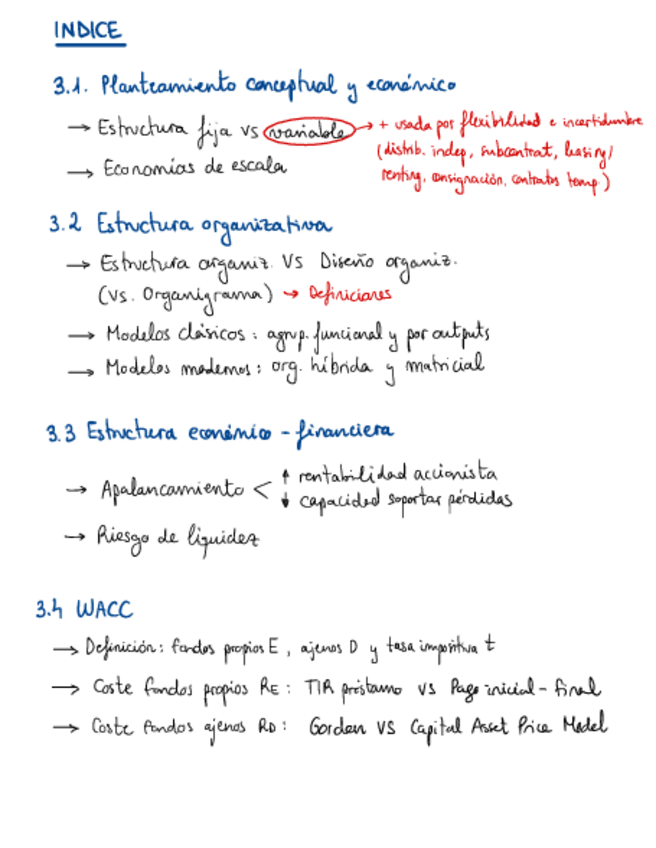 INDICE
3.1. Planteamiento conceptual y económico
→ Estructura fija vs variable → + usada por flexibilidad e incertidumbre
(distrib. indep, subcontrat, leasing/
→ Economías de escala
renting, consignación, contratos temp.)
3.2 Estructura organizativa
→ Estructura organiz. VS Diseño organiz.
(vs. Organigrama) → Definiciones
→ Modelos clásicos: agrup. funcional y por outputs
→ Modelos modernos: org. híbrida y matricial
3.3 Estructura económico - financiera
→ Apalancamiento < ↑ rentabilidad accionista
↓ capacidad soportar pérdidas
→ Riesgo de liquidez
3.4 WACC
→ Definición: fondos propios E, ajenos D y tasa impositiva t
→ Coste fondos propios RE: TIR préstamo vs Pago inicial - final
→ Coste fondos ajenos RD: Gordon VS Capital Asset Price Model